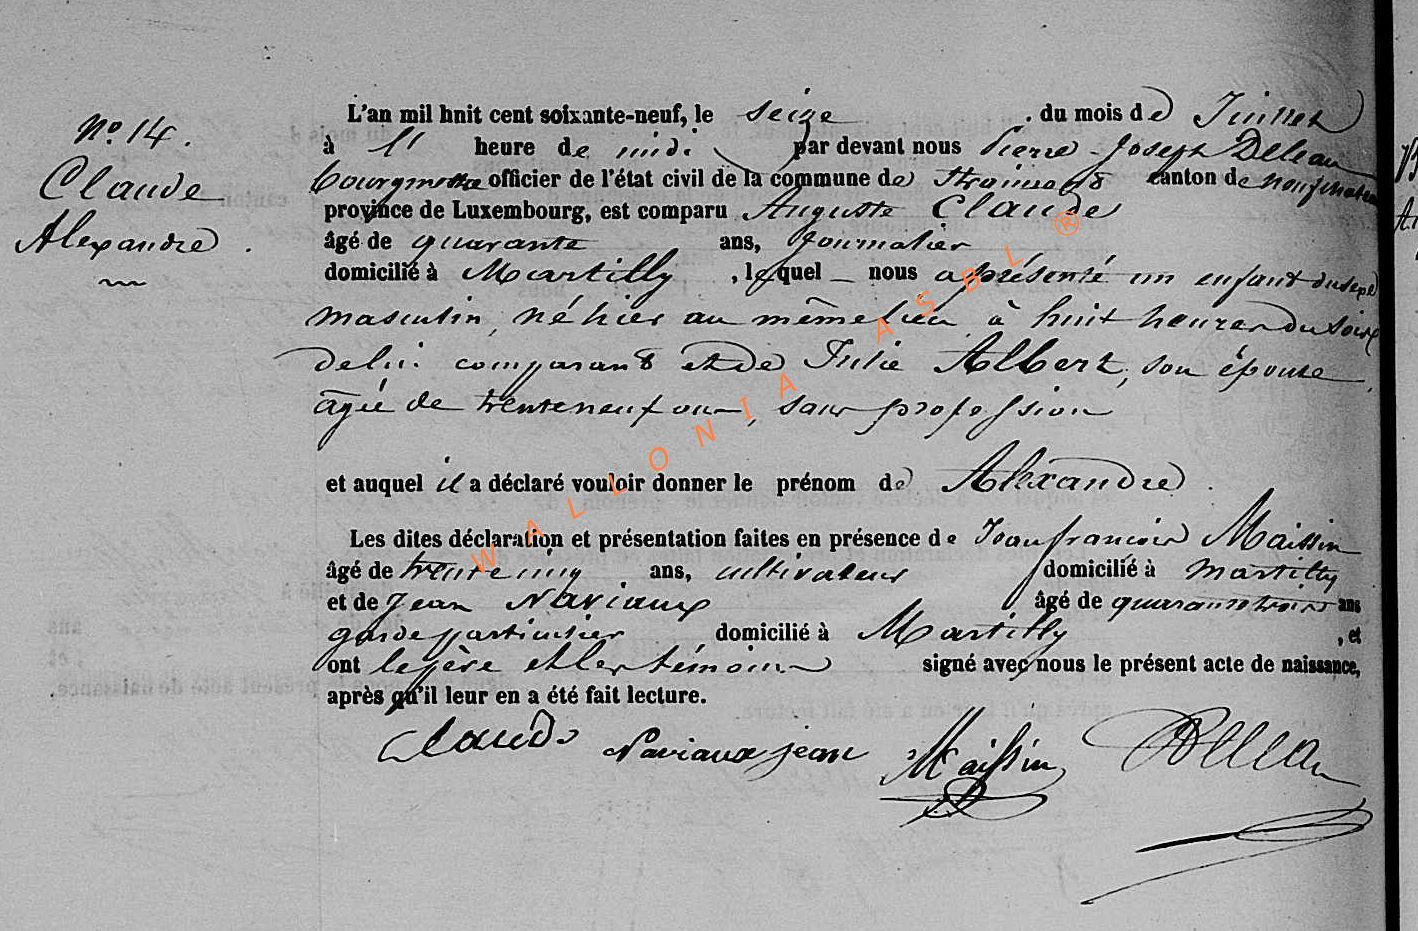 N° 14.
Claude
Alexandre.
L'an mil huit cent soixante-neuf, le seize du mois de Juillet
à l' heure de midi par devant nous Pierre Joseph Deleau
bourgmestre officier de l'état civil de la commune de Straimont canton de Neufchateau
province de Luxembourg, est comparu Auguste Claude
âgé de quarante ans, journalier
domicilié à Martilly, lequel nous a présenté un enfant du sexe
masculin, né hier au même lieu à huit heures du soir
de lui comparant et de Julie Albert, son épouse,
âgée de trente neuf ans, sans profession
et auquel il a déclaré vouloir donner le prénom de Alexandre.
Les dites déclaration et présentation faites en présence de Jean françois Maissin
âgé de trente cinq ans, cultivateur domicilié à Martilly
et de Jean Naviaux âgé de quarante trois ans
garde particulier domicilié à Martilly, et
ont le père et les témoins signé avec nous le présent acte de naissance,
après qu'il leur en a été fait lecture.
Claude Naviaux jean Maissin Deleau
WALLONIA ASBL ®